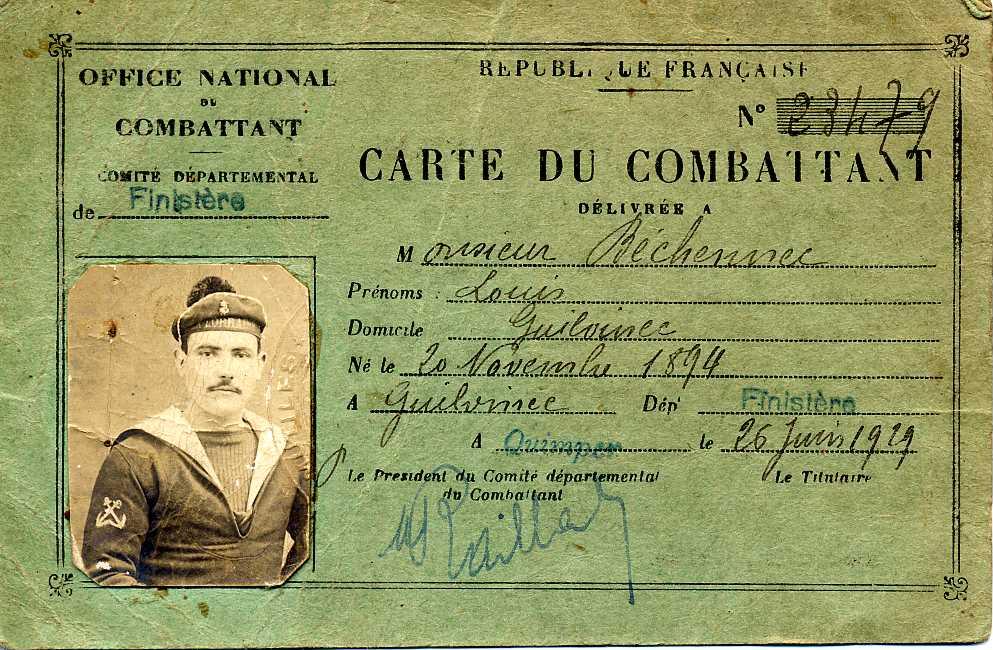 OFFICE NATIONAL
DU
COMBATTANT
COMITÉ DÉPARTEMENTAL
de Finistère
REPUBLIQUE FRANÇAISE
N° 23479
CARTE DU COMBATTANT
DÉLIVRÉE A
Monsieur Béchennec
Prénoms : Louis
Domicile Guilvinec
Né le 20 Novembre 1894
A Guilvinec Dépt Finistère
A Quimper le 26 Juin 1929
Le President du Comité départemental
du Combattant
Le Titulaire